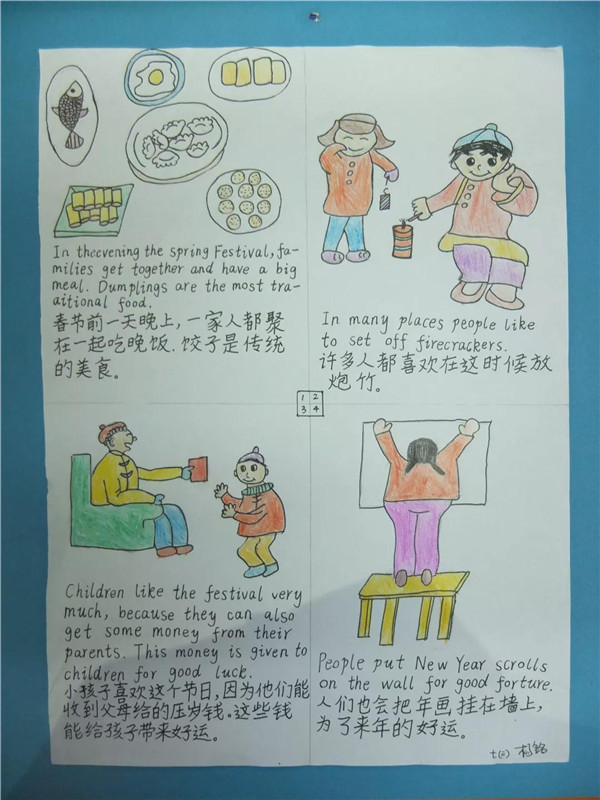 In theevening the spring Festival, fa-
milies get together and have a big
meal. Dumplings are the most tra-
aitional food.
春节前一天晚上，一家人都聚
在一起吃晚饭.饺子是传统
的美食。
In many places people like
to set off firecrackers.
许多人都喜欢在这时候放
炮竹。
1 2
3 4
Children like the festival very
much, because they can also
get some money from their
parents. This money is given to
children for good luck.
小孩子喜欢这个节日,因为他们能
收到父母给的压岁钱。这些钱
能给孩子带来好运。
People put New Year scrolls
on the wall for good forture.
人们也会把年画挂在墙上，
为了来年的好运。